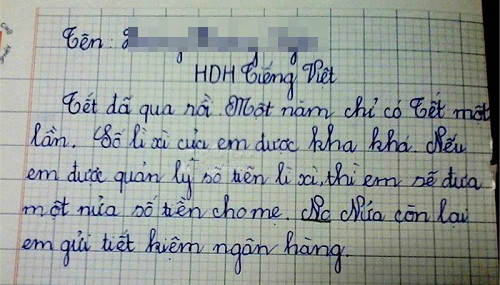 Tên:
HDH Tiếng Việt
Tết đã qua rồi. Một năm chỉ có Tết một
lần. Số lì xì của em được kha khá. Nếu
em được quản lý số tiền lì xì, thì em sẽ đưa
một nửa số tiền cho mẹ. Nử Nửa còn lại
em gửi tiết kiệm ngân hàng.